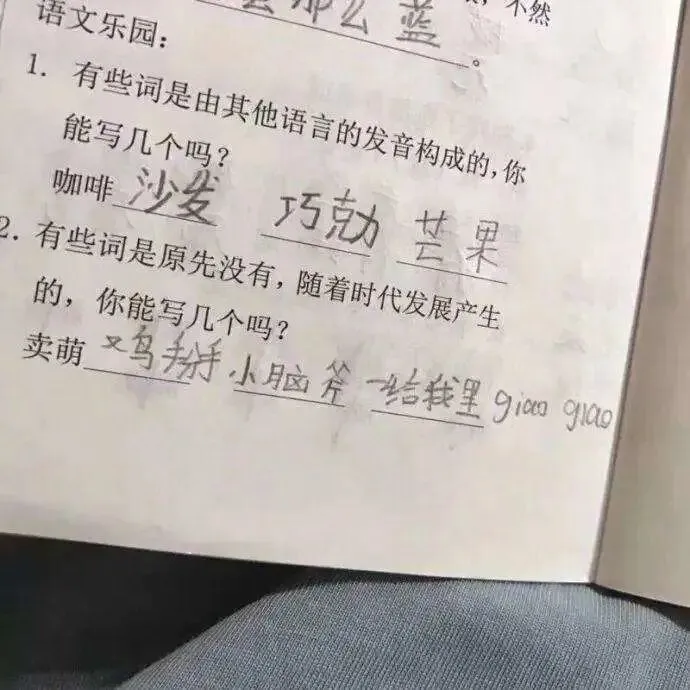 么那么蓝。不然
语文乐园：
1. 有些词是由其他语言的发音构成的，你
能写几个吗？
咖啡 沙发 巧勊 芒果
2. 有些词是原先没有，随着时代发展产生
的，你能写几个吗？
卖萌 又鸟掰手 小脑斧 一给我里giao giao